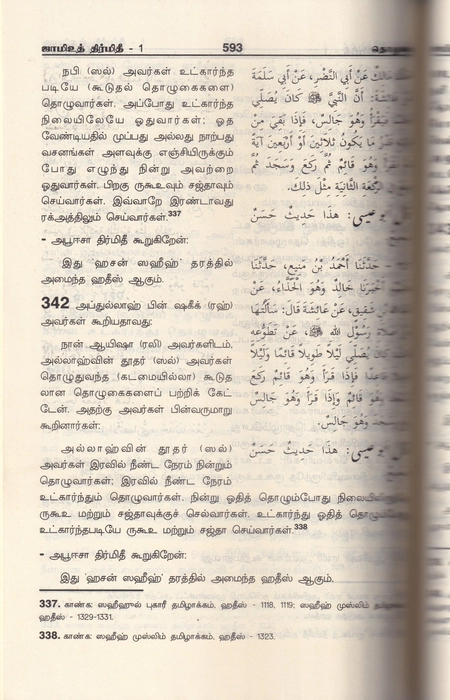 ஜாமிஉத் திர்மிதீ - 1
593
நபி (ஸல்) அவர்கள் உட்கார்ந்த
படியே (கூடுதல் தொழுகைகளை)
தொழுவார்கள். அப்போது உட்கார்ந்த
நிலையிலேயே ஓதுவார்கள்; ஓத
வேண்டியதில் முப்பது அல்லது நாற்பது
வசனங்கள் அளவுக்கு எஞ்சியிருக்கும்
போது எழுந்து நின்று அவற்றை
ஓதுவார்கள். பிறகு ருகூஉவும் சஜ்தாவும்
செய்வார்கள். இவ்வாறே இரண்டாவது
ரக்அத்திலும் செய்வார்கள்.337
– அபூஈசா திர்மிதீ கூறுகிறேன்:
இது 'ஹசன் ஸஹீஹ்' தரத்தில்
அமைந்த ஹதீஸ் ஆகும்.
342 அப்துல்லாஹ் பின் ஷகீக் (ரஹ்)
அவர்கள் கூறியதாவது:
நான் ஆயிஷா (ரலி) அவர்களிடம்,
அல்லாஹ்வின் தூதர் (ஸல்) அவர்கள்
தொழுதுவந்த (கடமையில்லா) கூடுத
லான தொழுகைகளைப் பற்றிக் கேட்
டேன். அதற்கு அவர்கள் பின்வருமாறு
கூறினார்கள்:
அல்லாஹ்வின் தூதர் (ஸல்)
அவர்கள் இரவில் நீண்ட நேரம் நின்றும்
தொழுவார்கள்; இரவில் நீண்ட நேரம்
உட்கார்ந்தும் தொழுவார்கள். நின்று ஓதித் தொழும்போது
ருகூஉ மற்றும் சஜ்தாவுக்குச் செல்வார்கள். உட்கார்ந்து ஓதித்
உட்கார்ந்தபடியே ருகூஉ மற்றும் சஜ்தா செய்வார்கள்.338
– அபூஈசா திர்மிதீ கூறுகிறேன்:
இது 'ஹசன் ஸஹீஹ்' தரத்தில் அமைந்த ஹதீஸ் ஆகும்.
عَنْ أَبِي النَّضْرِ، عَنْ أَبِي سَلَمَةَ
أَنَّ النَّبِيَّ ﷺ كَانَ يُصَلِّي
وَهُوَ جَالِسٌ، فَإِذَا بَقِيَ مِنْ
مَا يَكُونُ ثَلَاثِينَ أَوْ أَرْبَعِينَ آيَةً
وَهُوَ قَائِمٌ ثُمَّ رَكَعَ وَسَجَدَ ثُمَّ
الثَّانِيَةِ مِثْلَ ذَلِكَ.
عِيسَى: هَذَا حَدِيثٌ حَسَنٌ
حَدَّثَنَا أَحْمَدُ بْنُ مَنِيعٍ، حَدَّثَنَا
خَالِدٌ وَهُوَ الْحَذَّاءُ، عَنْ
شَقِيقٍ، عَنْ عَائِشَةَ قَالَ: سَأَلْتُهَا
رَسُولِ اللَّهِ ﷺ، عَنْ تَطَوُّعِهِ
يُصَلِّي لَيْلًا طَوِيلًا قَائِمًا وَلَيْلًا
فَإِذَا قَرَأَ وَهُوَ قَائِمٌ رَكَعَ
قَائِمٌ وَإِذَا قَرَأَ وَهُوَ جَالِسٌ
وَهُوَ جَالِسٌ.
عِيسَى: هَذَا حَدِيثٌ حَسَنٌ
337. காண்க: ஸஹீஹுல் புகாரீ தமிழாக்கம், ஹதீஸ் - 1118, 1119; ஸஹீஹ் முஸ்லிம்
ஹதீஸ் - 1329-1331.
338. காண்க: ஸஹீஹ் முஸ்லிம் தமிழாக்கம், ஹதீஸ் - 1323.